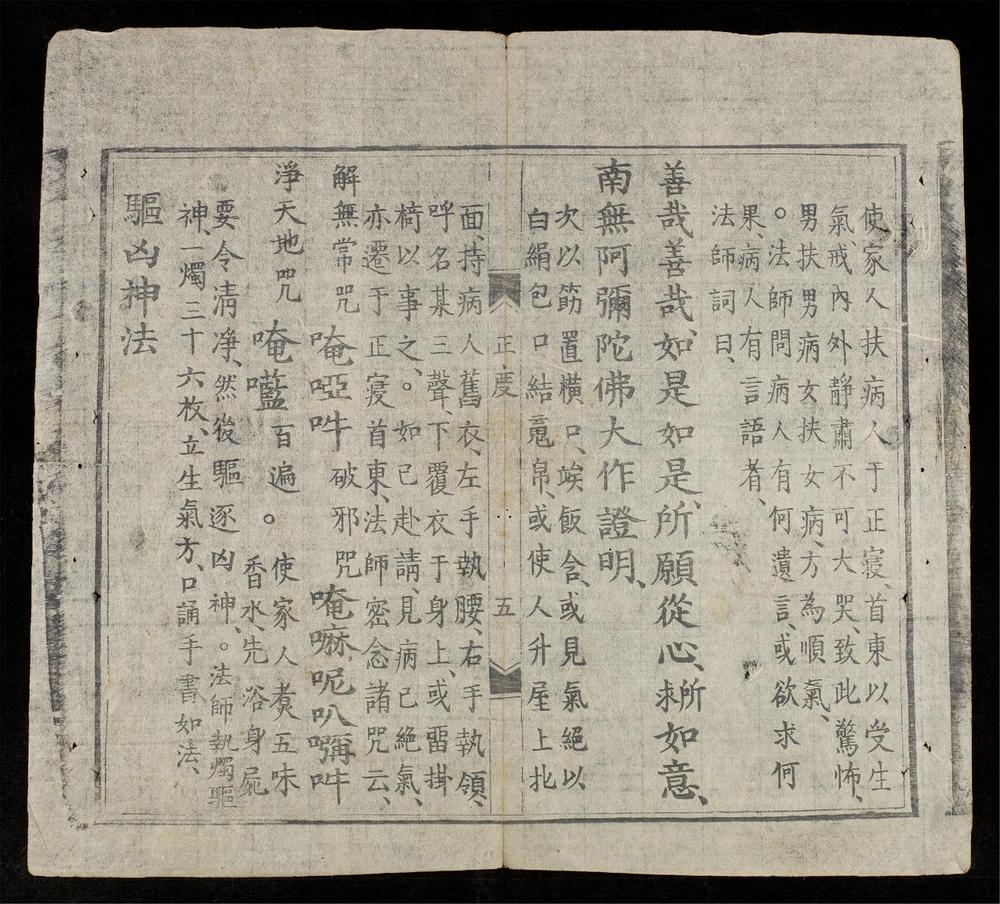 使家人扶病人于正寝、首東以受生
氣戒內外靜肅不可大哭、致此驚怖、
男扶男病女扶女病、方為順氣、
。法師問病人有何遺言、或欲求何
果、病人有言語者、
法師詞曰、
善哉善哉、如是如是、所願從心、所求如意、
南無阿彌陀佛大作證明、
次以筯置橫口、竢飯含、或見氣絕以
白絹包口結竟帛、或使人升屋上北
正度 五
面、持病人舊衣、左手執腰、右手執領、
呼名某三聲、下覆衣于身上、或畱掛
椅以事之、。如已赴請、見病已絕氣、
亦遷于正寝首東、法師密念諸咒云、
解無常咒 唵啞吽 破邪咒 唵嘛呢叭嘛吽
淨天地咒 唵㘕百遍。使家人煑五味
香水、先浴身屍
要令清凈、然後驅逐凶神、。法師執燭驅
神、一燭三十六枚、立生氣方、口誦手書如法、
驅凶神法